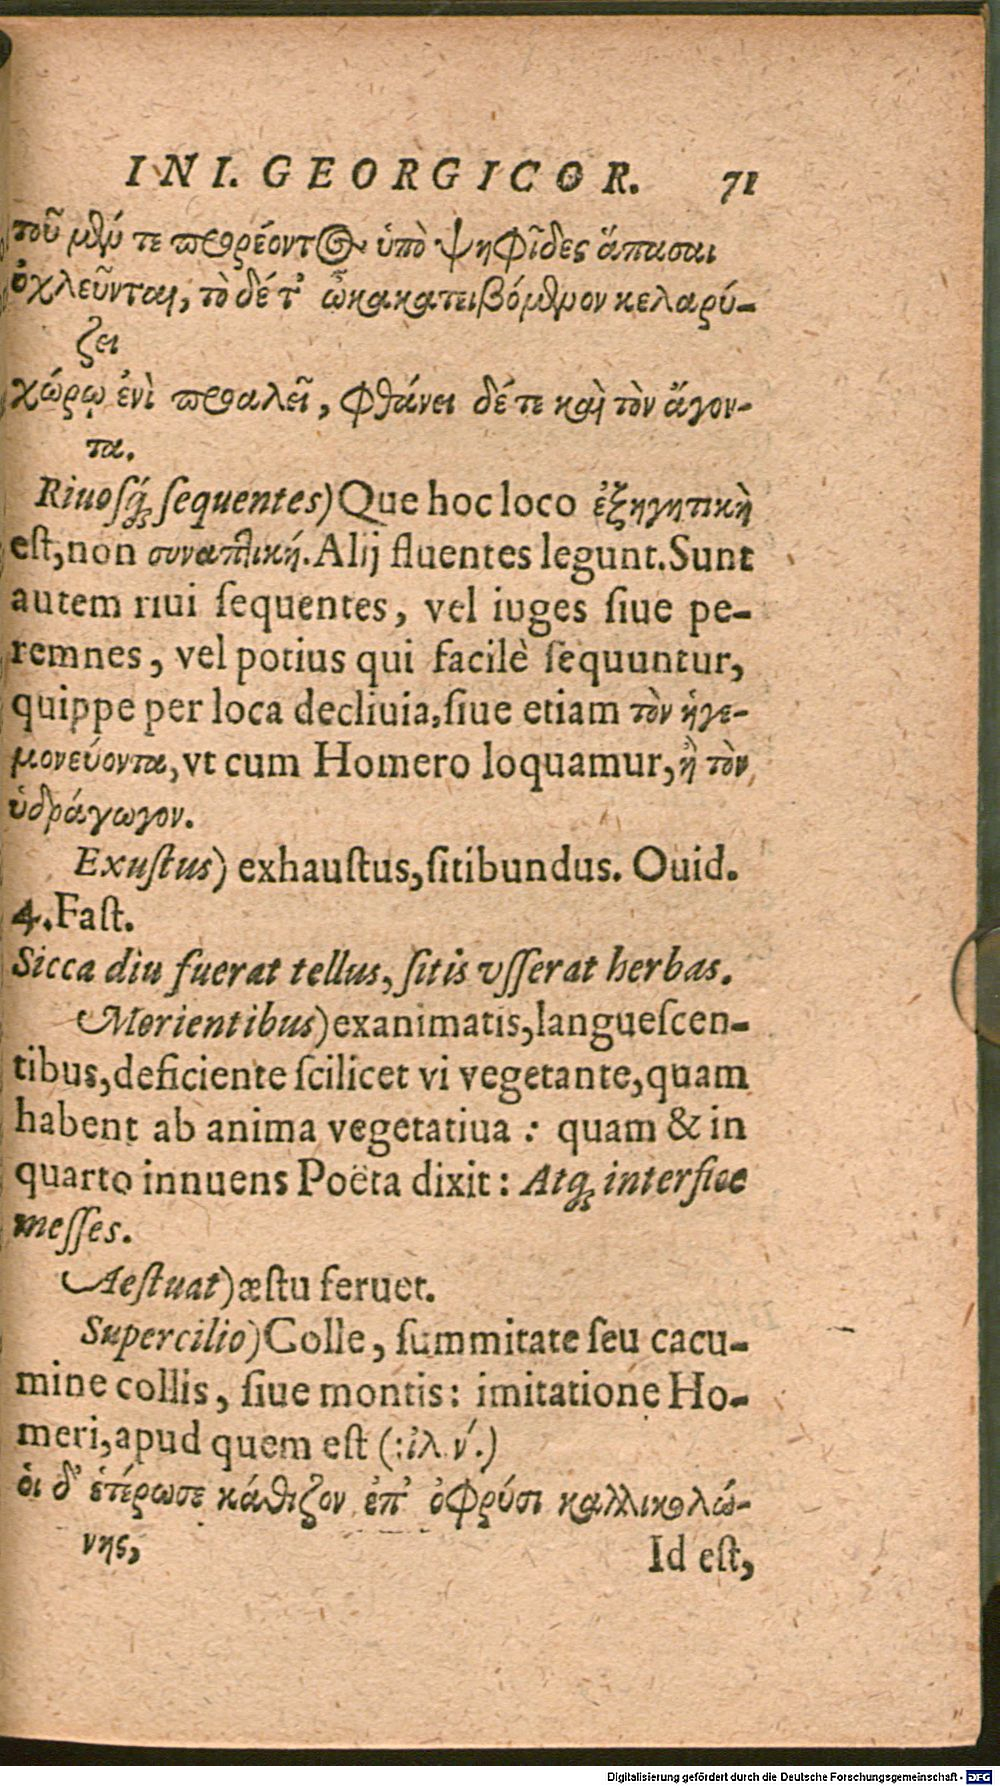 IN I. GEORGICOR. 71
τοῦ μέν τε προρέοντος ὑπὸ ψηφῖδες ἅπασαι
ὀχλεῦνται, τὸ δέ τ' ὦκα κατειβόμενον κελαρύ-
ζει
χώρῳ ἐνὶ προαλεῖ, φθάνει δέ τε καὶ τὸν ἄγον-
τα.
Riuosq́; sequentes) Que hoc loco ἐξηγητικὴ
est, non συναπλική. Alij fluentes legunt. Sunt
autem riui sequentes, vel iuges siue pe-
remnes, vel potius qui facilè sequuntur,
quippe per loca decliuia, siue etiam τὸν ἡγε-
μονεύοντα, vt cum Homero loquamur, ἢ τὸν
ὑδράγωγον.
Exustus) exhaustus, sitibundus. Ouid.
4. Fast.
Sicca diu fuerat tellus, sitis vsserat herbas.
Morientibus) exanimatis, languescen-
tibus, deficiente scilicet vi vegetante, quam
habent ab anima vegetatiua : quam & in
quarto innuens Poëta dixit : Atq; interfice
messes.
Aestuat) æstu feruet.
Supercilio) Colle, summitate seu cacu-
mine collis, siue montis : imitatione Ho-
meri, apud quem est (: ἰλ. ν΄.)
οἱ δ' ἑτέρωσε κάθιζον ἐπ' ὀφρύσι καλλικολώ-
νης,
Id est,
Digitalisierung gefördert durch die Deutsche Forschungsgemeinschaft - DFG